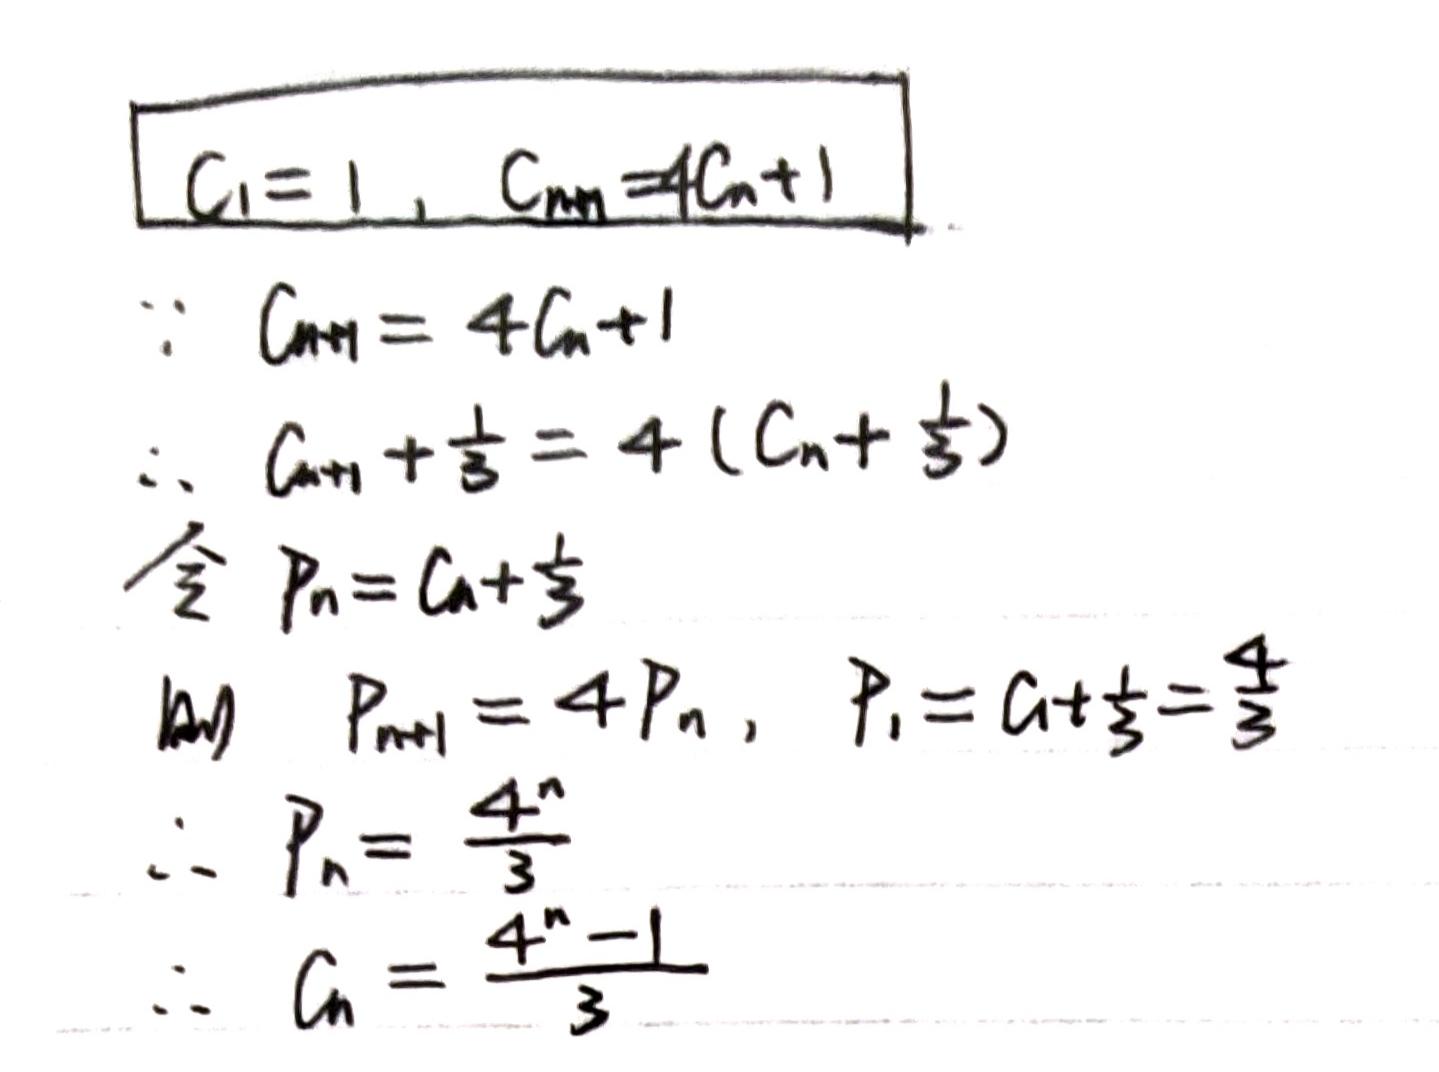 C₁ = 1 , Cₙ₊₁ = 4Cₙ + 1
∵ Cₙ₊₁ = 4Cₙ + 1
∴ Cₙ₊₁ + 1/3 = 4 ( Cₙ + 1/3 )
令 Pₙ = Cₙ + 1/3
则 Pₙ₊₁ = 4Pₙ , P₁ = C₁ + 1/3 = 4/3
∴ Pₙ = 4ⁿ/3
∴ Cₙ = (4ⁿ - 1)/3